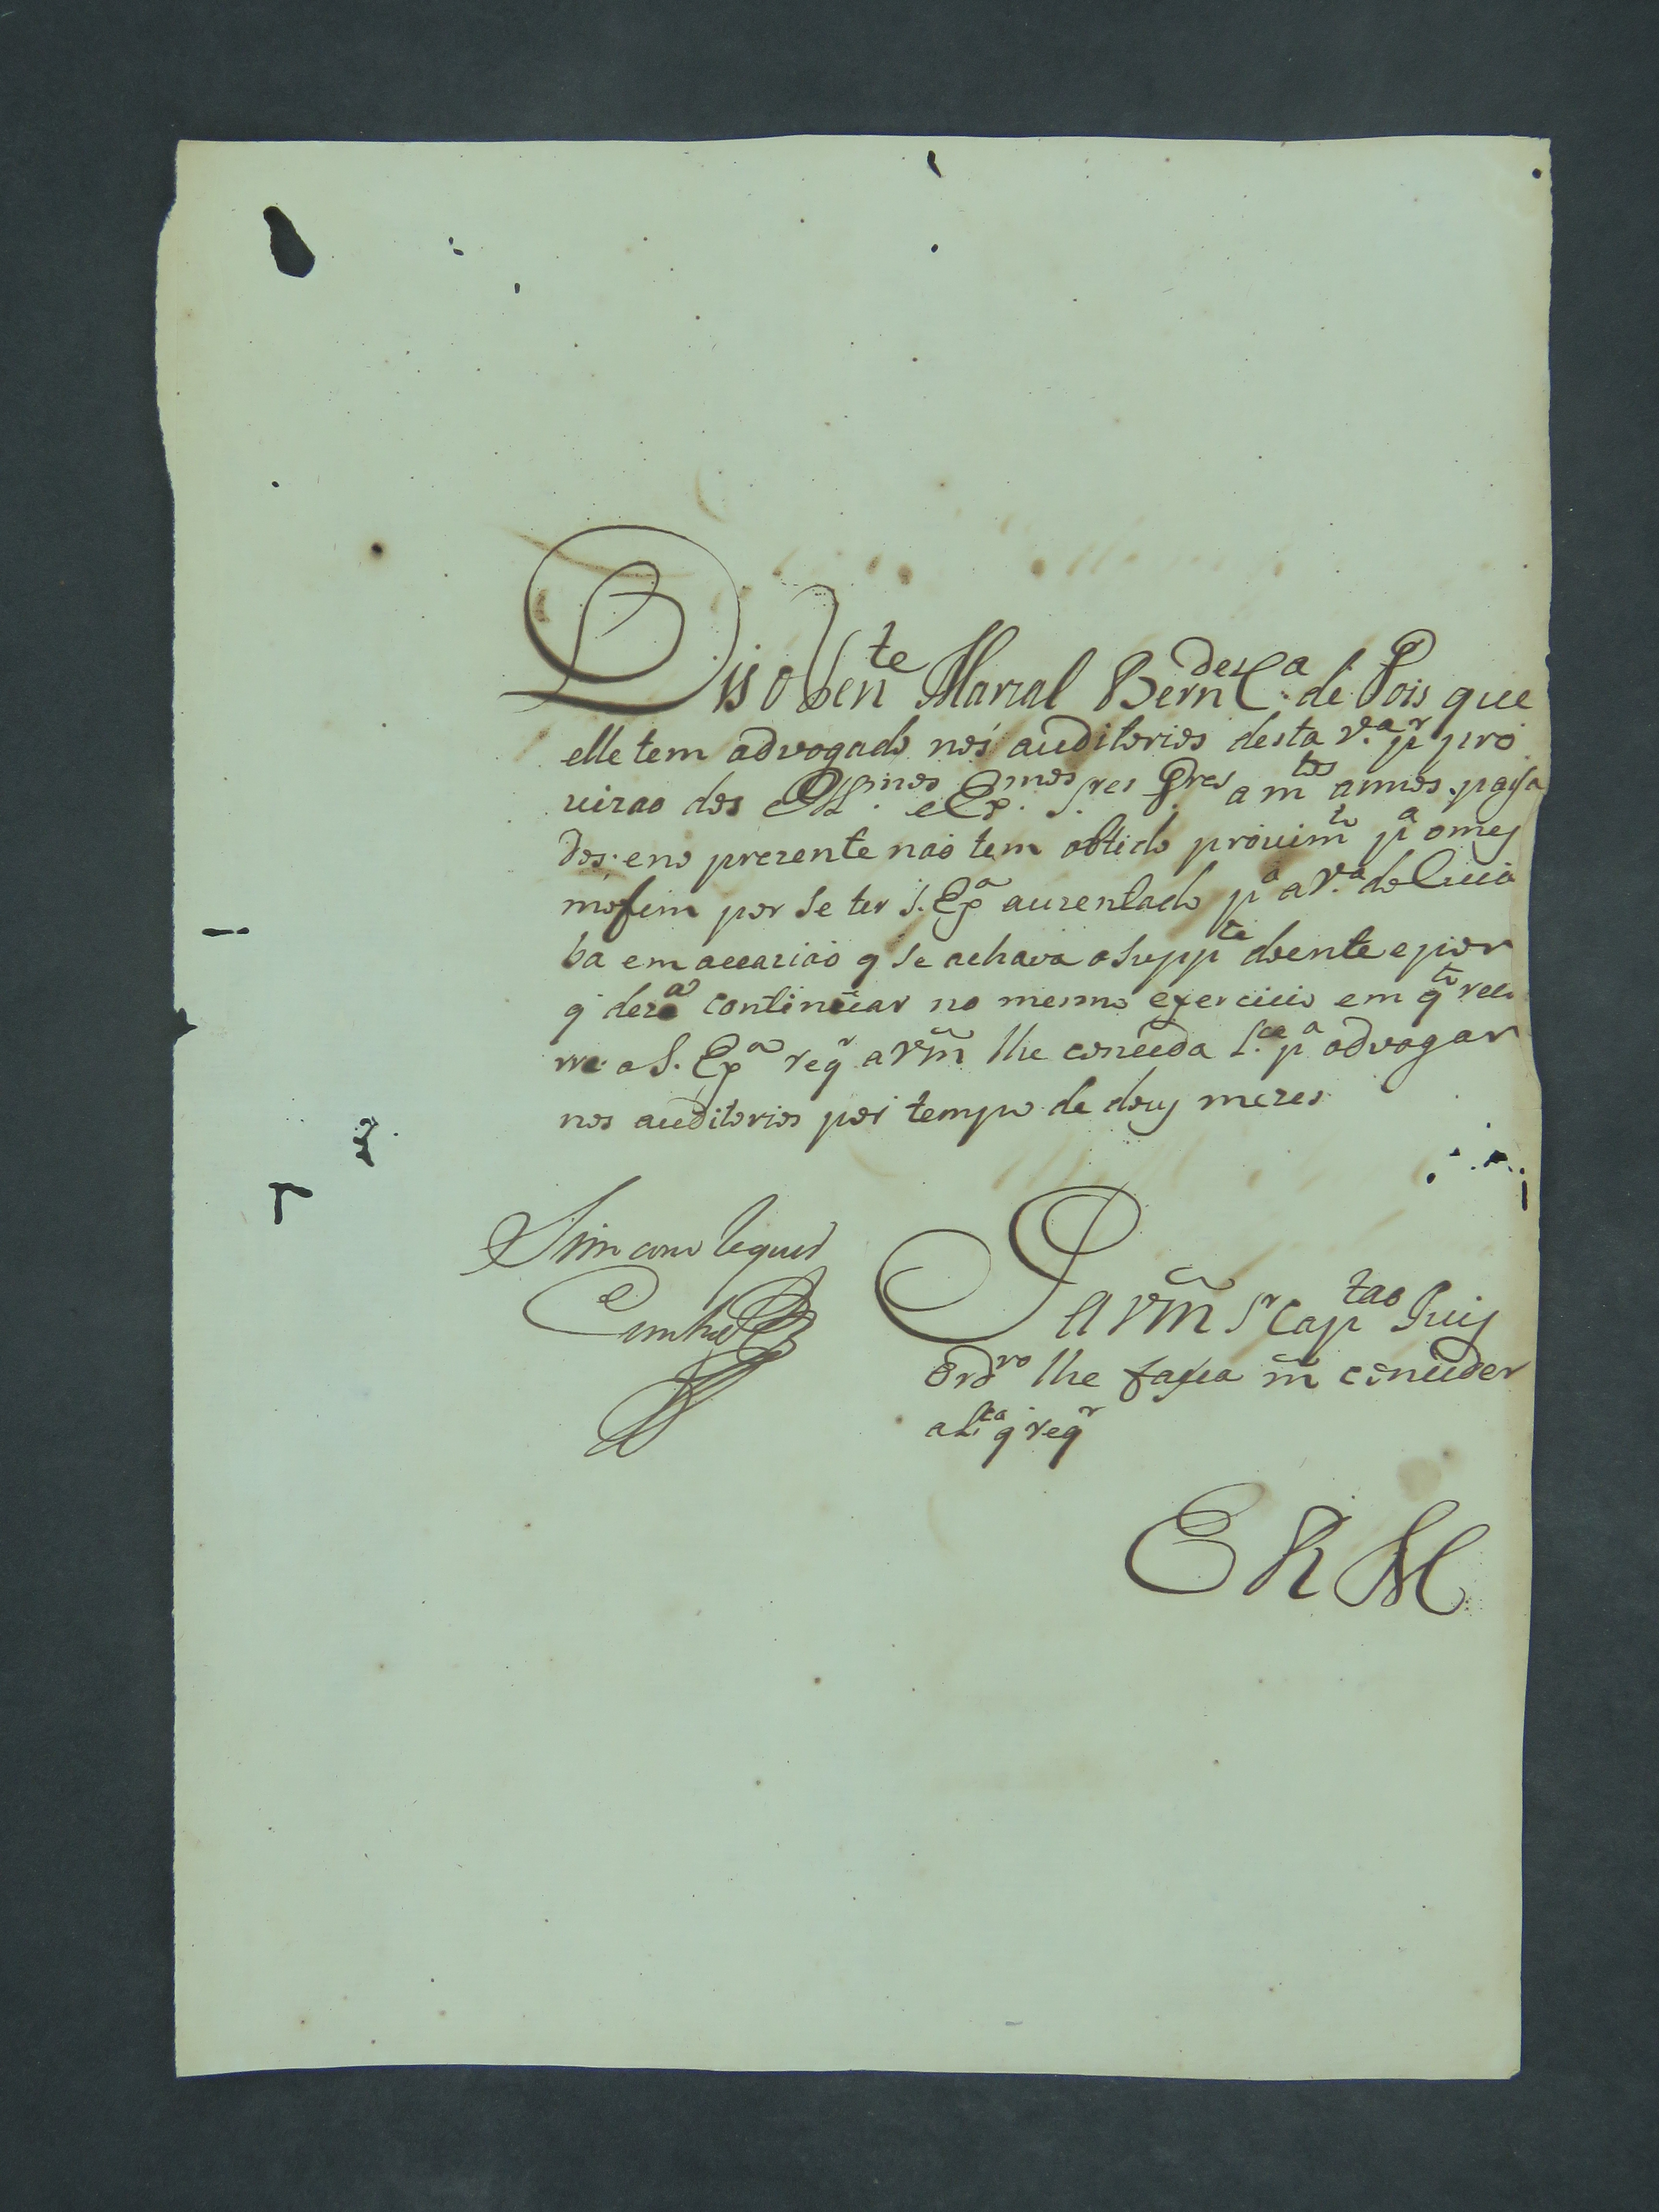 Dis o Ten.te Marcal Bern.des C.a de Gois que
elle tem advogado nos auditorios desta V.a p.r pro
vizao dos Ill.mos e Ex.mos S.res G.res a m.tos annos passa
dos, e no prezente naõ tem obtido provim.to p.a o mes
mo fim por se ter S. Ex.a auzentado p.a a V.a do Cuia
ba em occaziaõ q̃ se achava o supp.te doente e por
q̃ dez.a continuar no mesmo exercicio em q.to reco
rre a S. Ex.a req.r a Vm̃ lhe conceda l.ca p.a advogar
nos auditorios por tempo de dous mezes
Sim como requer
Cunha
P a Vm̃ S.r Cap.tao Juis
Ord.ro lhe faça m̃ conceder
a L.ca q̃ req.r
E R M